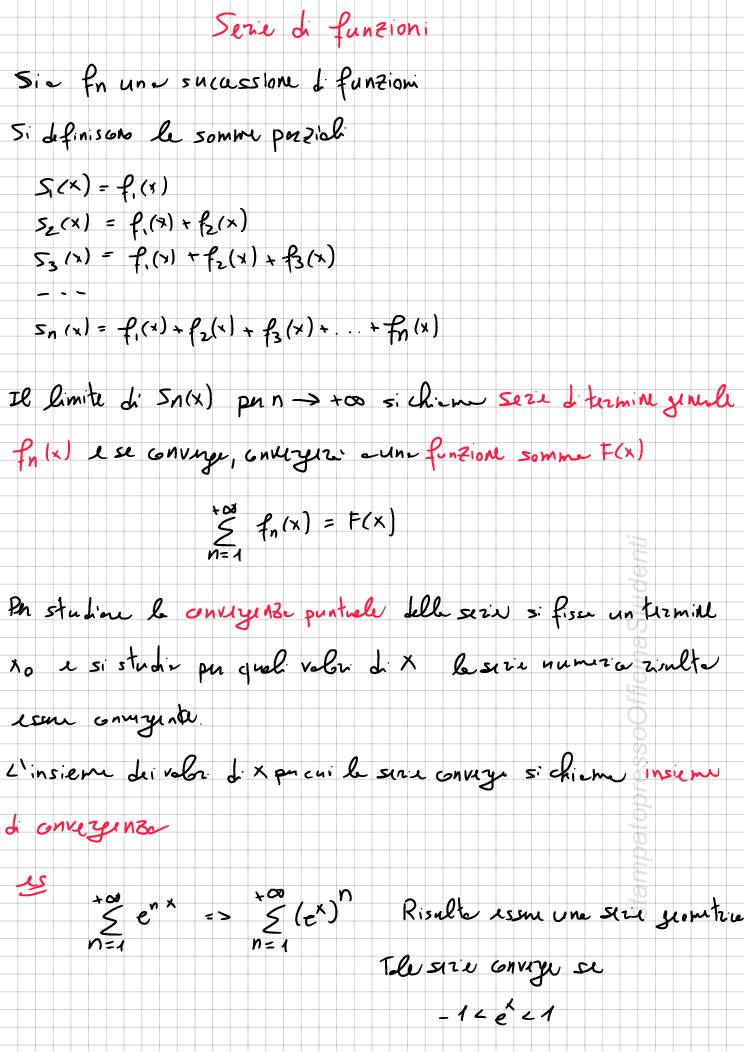 Serie di funzioni
Sia fn una successione di funzioni
Si definiscono le somme parziali
S₁(x) = f₁(x)
S₂(x) = f₁(x) + f₂(x)
S₃(x) = f₁(x) + f₂(x) + f₃(x)
- - -
Sn(x) = f₁(x) + f₂(x) + f₃(x) + . . . + fn(x)
Il limite di Sn(x) per n → +∞ si chiama serie di termine generale
fn(x) e se converge, convergerà a una funzione somma F(x)
+∞
∑ fn(x) = F(x)
n=1
Per studiare la convergenza puntuale della serie si fissa un termine
x₀ e si studia per quali valori di x la serie numerica risulta
essere convergente.
L'insieme dei valori di x per cui la serie converge si chiama insieme
di convergenza
es
+∞ +∞
∑ e^{nx} => ∑ (e^x)^n Risulta essere una serie geometrica
n=1 n=1
Tale serie converge se
-1 < e^x < 1
tampatopressoOfficinaStudenti